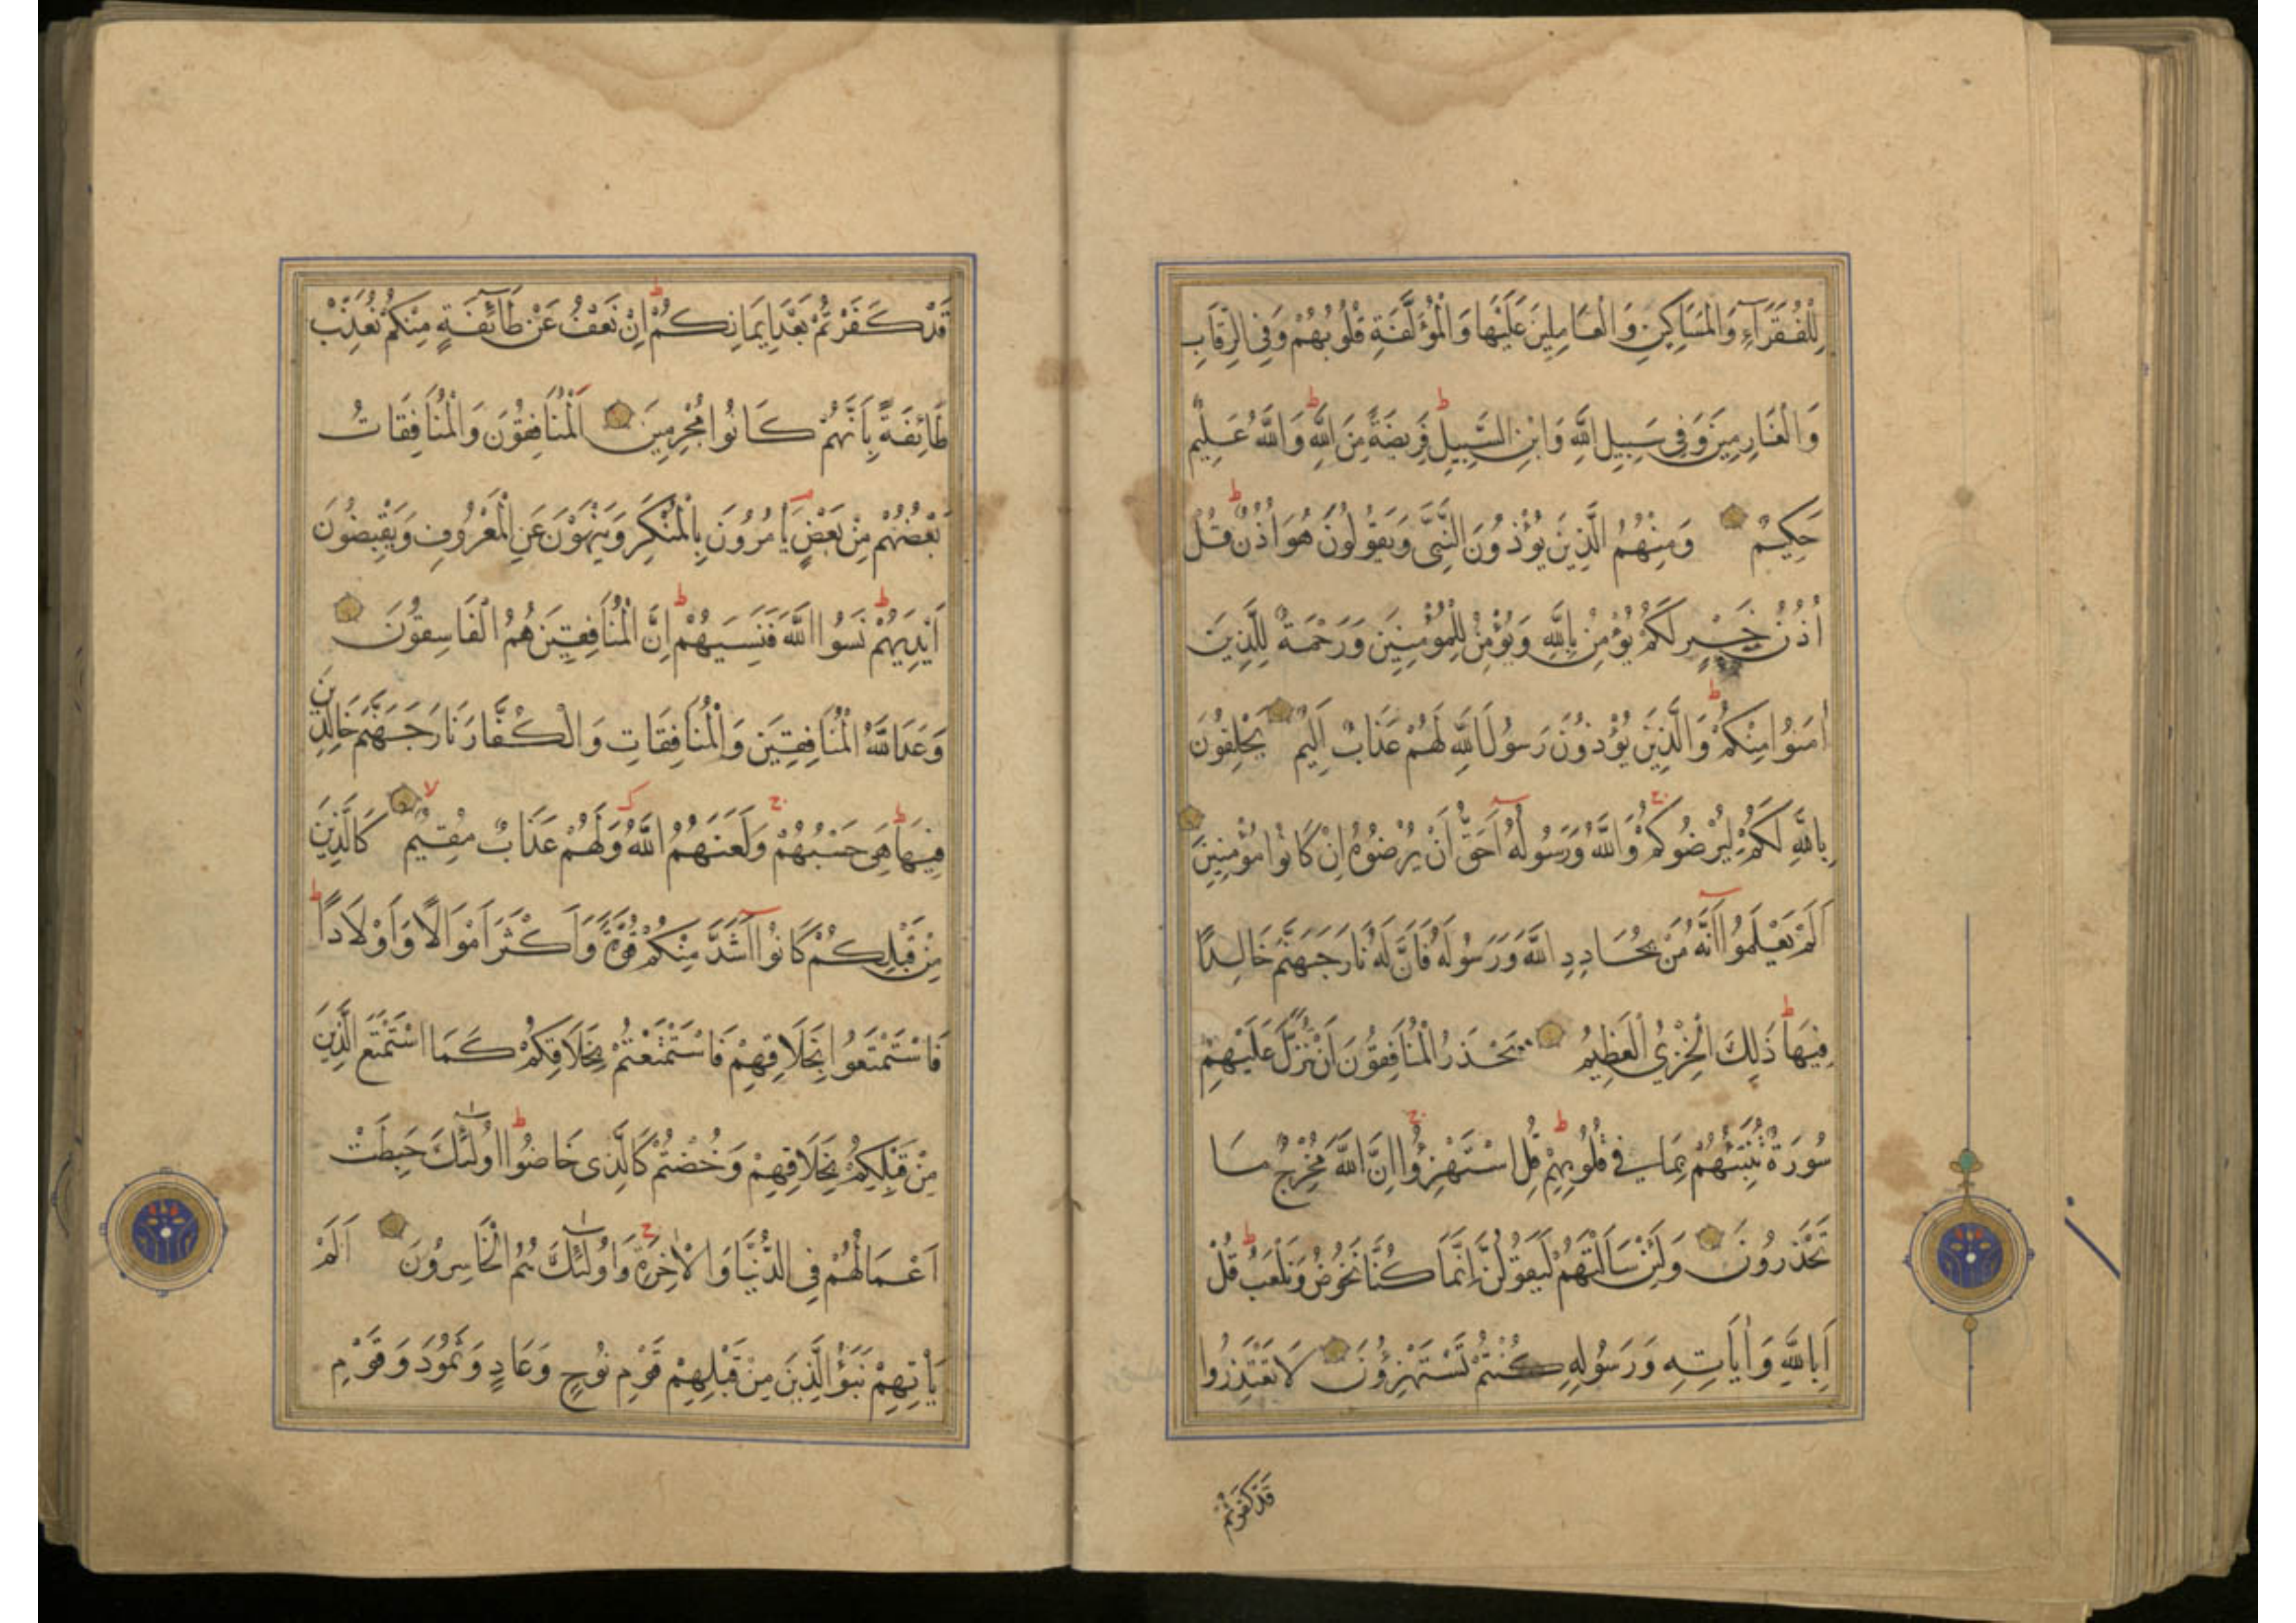 لِلْفُقَرَآءِ وَالْمَسَاكِينِ وَالْعَامِلِينَ عَلَيْهَا وَالْمُؤَلَّفَةِ قُلُوبُهُمْ وَفِي الرِّقَابِ
وَالْغَارِمِينَ وَفِي سَبِيلِ اللَّهِ وَابْنِ السَّبِيلِ ط فَرِيضَةً مِنَ اللَّهِ ط وَاللَّهُ عَلِيمٌ
حَكِيمٌ وَمِنْهُمُ الَّذِينَ يُؤْذُونَ النَّبِيَّ وَيَقُولُونَ هُوَ اُذُنٌ ط قُلْ
اُذُنُ خَيْرٍ لَكُمْ يُؤْمِنُ بِاللَّهِ وَيُؤْمِنُ لِلْمُؤْمِنِينَ وَرَحْمَةٌ لِلَّذِينَ
اٰمَنُوا مِنْكُمْ ط وَالَّذِينَ يُؤْذُونَ رَسُولَ اللَّهِ لَهُمْ عَذَابٌ اَلِيمٌ يَحْلِفُونَ
بِاللَّهِ لَكُمْ لِيُرْضُوكُمْ ج وَاللَّهُ وَرَسُولُهُ اَحَقُّ اَنْ يُرْضُوهُ اِنْ كَانُوا مُؤْمِنِينَ
اَلَمْ يَعْلَمُوا اَنَّهُ مَنْ يُحَادِدِ اللَّهَ وَرَسُولَهُ فَاَنَّ لَهُ نَارَ جَهَنَّمَ خَالِدًا
فِيهَا ط ذَلِكَ الْخِزْيُ الْعَظِيمُ يَحْذَرُ الْمُنَافِقُونَ اَنْ تُنَزَّلَ عَلَيْهِمْ
سُورَةٌ تُنَبِّئُهُمْ بِمَا فِي قُلُوبِهِمْ ط قُلِ اسْتَهْزِؤُا ج اِنَّ اللَّهَ مُخْرِجٌ مَا
تَحْذَرُونَ وَلَئِنْ سَاَلْتَهُمْ لَيَقُولُنَّ اِنَّمَا كُنَّا نَخُوضُ وَنَلْعَبُ ط قُلْ
اَبِاللَّهِ وَاٰيَاتِهِ وَرَسُولِهِ كُنْتُمْ تَسْتَهْزِؤُنَ لَا تَعْتَذِرُوا
قَدْ كَفَرْتُمْ
قَدْ كَفَرْتُمْ بَعْدَ اِيمَانِكُمْ ط اِنْ نَعْفُ عَنْ طَآئِفَةٍ مِنْكُمْ نُعَذِّبْ
طَائِفَةً بِاَنَّهُمْ كَانُوا مُجْرِمِينَ اَلْمُنَافِقُونَ وَالْمُنَافِقَاتُ
بَعْضُهُمْ مِنْ بَعْضٍ يَاْمُرُونَ بِالْمُنْكَرِ وَيَنْهَوْنَ عَنِ الْمَعْرُوفِ وَيَقْبِضُونَ
اَيْدِيَهُمْ ط نَسُوا اللَّهَ فَنَسِيَهُمْ ط اِنَّ الْمُنَافِقِينَ هُمُ الْفَاسِقُونَ
وَعَدَ اللَّهُ الْمُنَافِقِينَ وَالْمُنَافِقَاتِ وَالْكُفَّارَ نَارَ جَهَنَّمَ خَالِدِينَ
فِيهَا ط هِيَ حَسْبُهُمْ ج وَلَعَنَهُمُ اللَّهُ وَلَهُمْ عَذَابٌ مُقِيمٌ لا كَالَّذِينَ
مِنْ قَبْلِكُمْ كَانُوا اَشَدَّ مِنْكُمْ قُوَّةً وَاَكْثَرَ اَمْوَالًا وَاَوْلَادًا ط
فَاسْتَمْتَعُوا بِخَلَاقِهِمْ فَاسْتَمْتَعْتُمْ بِخَلَاقِكُمْ كَمَا اسْتَمْتَعَ الَّذِينَ
مِنْ قَبْلِكُمْ بِخَلَاقِهِمْ وَخُضْتُمْ كَالَّذِي خَاضُوا ط اُولٰئِكَ حَبِطَتْ
اَعْمَالُهُمْ فِي الدُّنْيَا وَالْاٰخِرَةِ ج وَاُولٰئِكَ هُمُ الْخَاسِرُونَ اَلَمْ
يَاْتِهِمْ نَبَؤُ الَّذِينَ مِنْ قَبْلِهِمْ قَوْمِ نُوحٍ وَعَادٍ وَثَمُودَ وَقَوْمِ